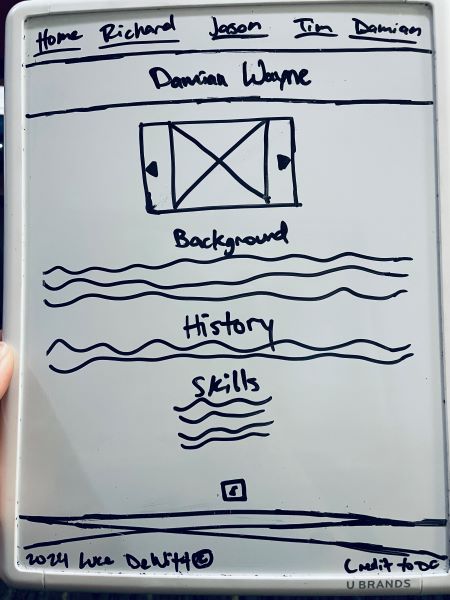 Home Richard Jason Tim Damian
Damian Wayne
Background
History
Skills
2024 Luce DeWitt ©
Credit to DC
U BRANDS